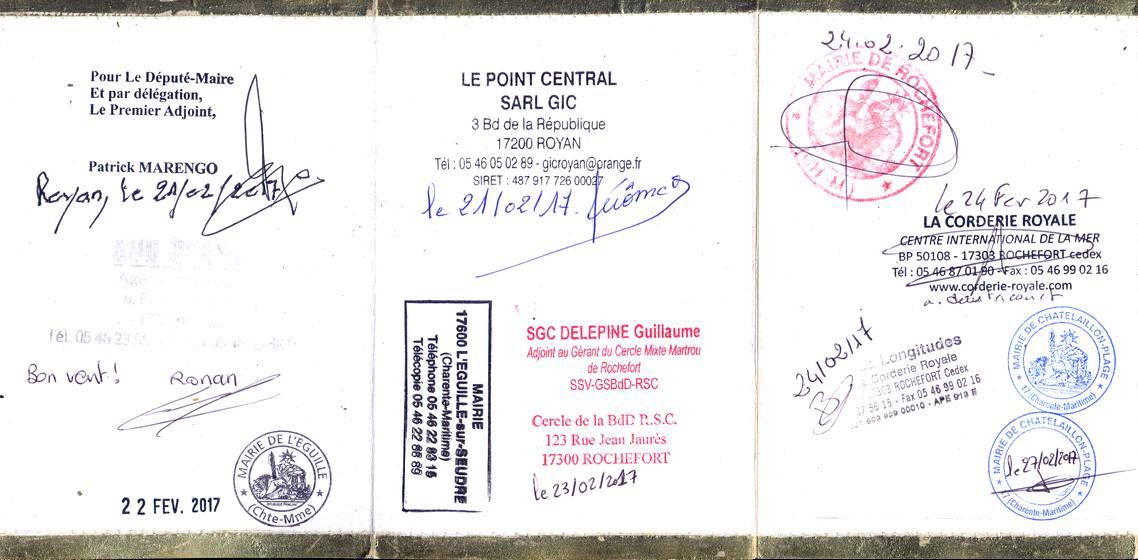 Pour Le Député-Maire
Et par délégation,
Le Premier Adjoint,
Patrick MARENGO
Royan, le 21/02/2017
Tél. 05 46
Bon vent! Ronan
MAIRIE DE L'EGUILLE
(Chte-Mme)
22 FEV. 2017
LE POINT CENTRAL
SARL GIC
3 Bd de la République
17200 ROYAN
Tél : 05 46 05 02 89 - gicroyan@orange.fr
SIRET : 487 917 726 00027
le 21/02/17. Jérôme
MAIRIE
17600 L'EGUILLE-sur-SEUDRE
(Charente-Maritime)
Téléphone 05 46 22 83 15
Télécopie 05 46 22 86 89
SGC DELEPINE Guillaume
Adjoint au Gérant du Cercle Mixte Martrou
de Rochefort
SSV-GSBdD-RSC
Cercle de la BdD R.S.C.
123 Rue Jean Jaurès
17300 ROCHEFORT
le 23/02/2017
24.02.2017
MAIRIE DE ROCHEFORT
le 24 Fev 2017
LA CORDERIE ROYALE
CENTRE INTERNATIONAL DE LA MER
BP 50108 - 17303 ROCHEFORT cedex
Tél : 05 46 87 01 90 - Fax : 05 46 99 02 16
www.corderie-royale.com
24/02/17
Longitudes
Corderie Royale
ROCHEFORT Cedex
56 15 - Fax 05 46 99 02 16
00010 - APE 913 E
MAIRIE DE CHATELAILLON-PLAGE
17 (Charente-Maritime)
MAIRIE DE CHATELAILLON-PLAGE
le 27/02/2017
17 (Charente-Maritime)